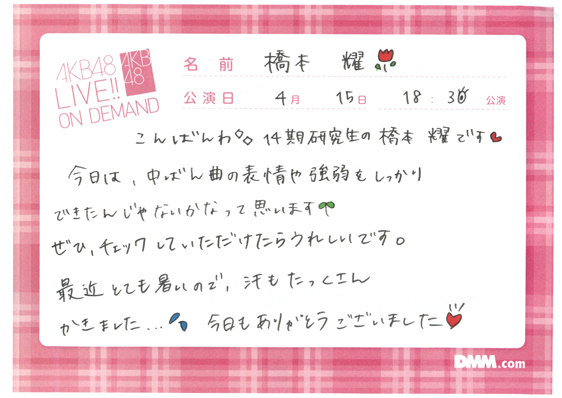 AKB48
LIVE!!
ON DEMAND
AKB
48
名前 橋本 耀
公演日 4月 15日 18:30 公演
こんばんわ 14期研究生の橋本 耀です
今日は、中ばん曲の表情や強弱をしっかり
できたんじゃないかなって思います
ぜひ、チェックしていただけたらうれしいです。
最近とても暑いので、汗もたっくさん
かきました... 今日もありがとうございました
DMM.com